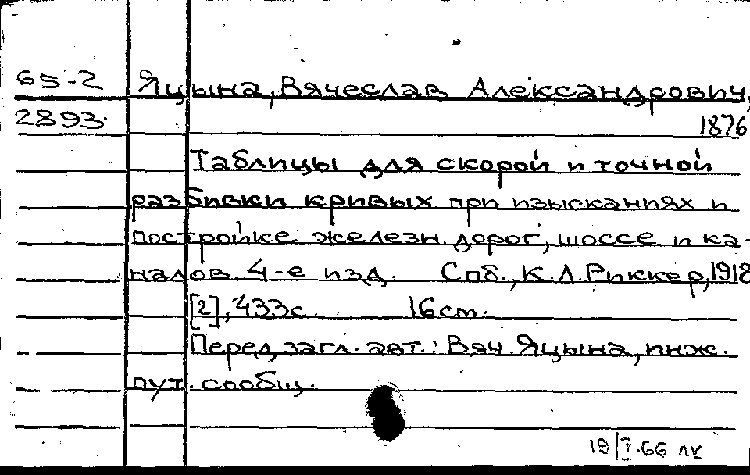 65-2 Яцына, Вячеслав Александрович,
2893. 1876
Таблицы для скорой и точной
разбивки кривых при изысканиях и
постройке железн. дорог, шоссе и ка-
налов. 4-е изд. Спб., К.Л.Риккер, 1912
[2], 433с. 16см.
Перед загл. авт.: Вяч. Яцына, инж.
пут. сообщ.
18/I.66 лк